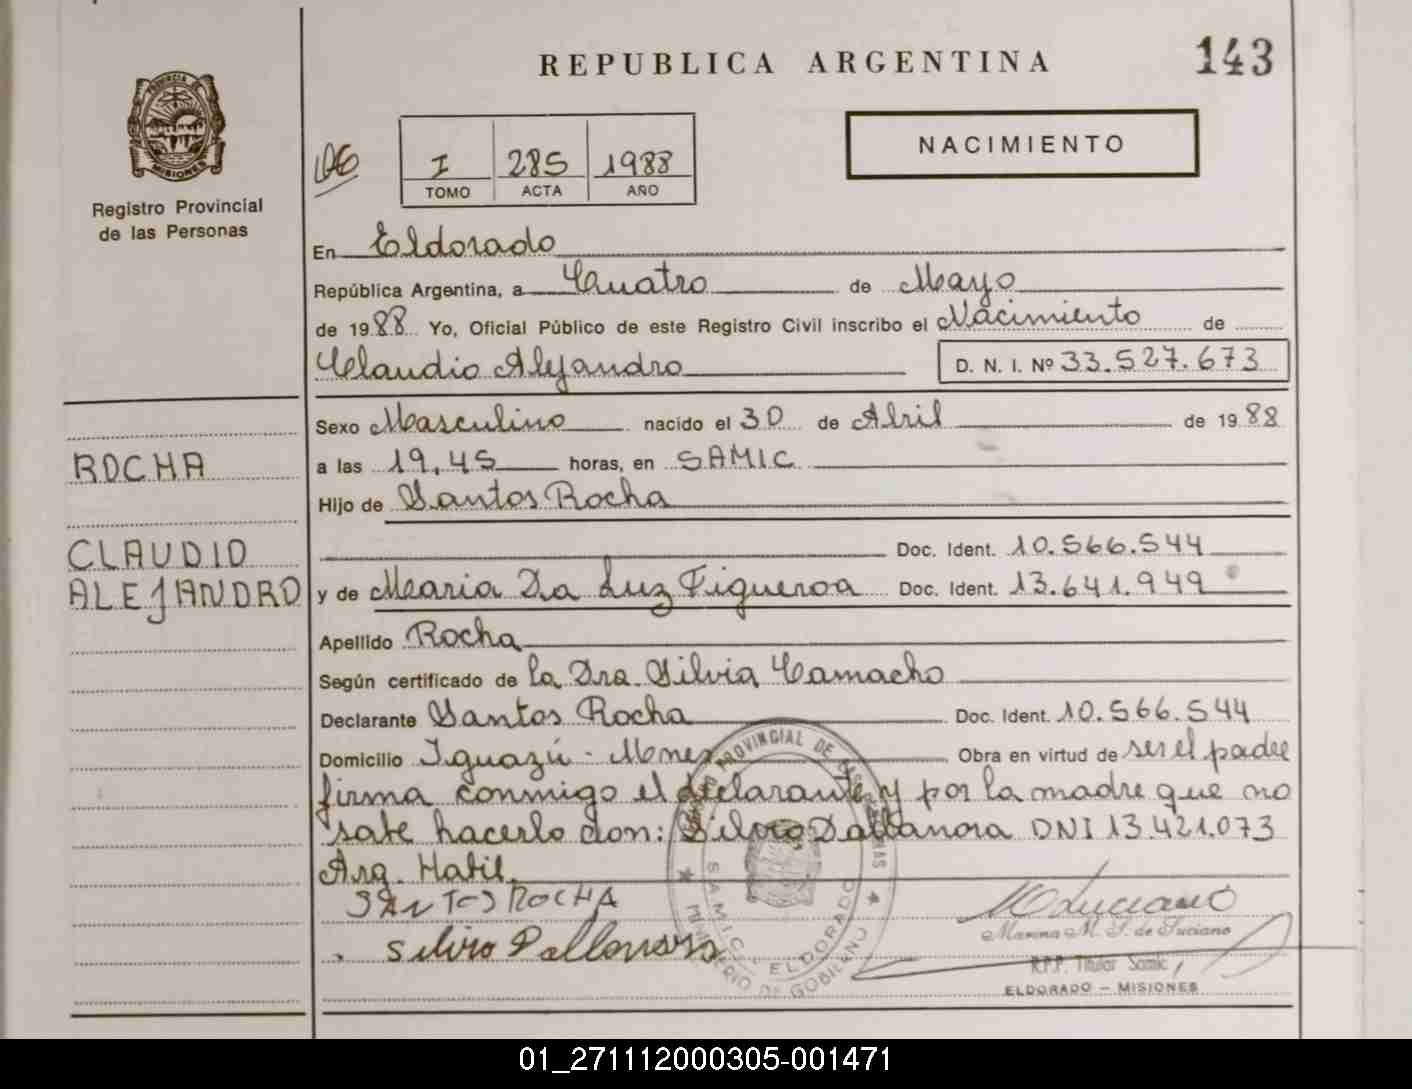 REPUBLICA ARGENTINA
143
PROVINCIA DE MISIONES
Registro Provincial
de las Personas
I 285 1988
TOMO ACTA AÑO
NACIMIENTO
En Eldorado
República Argentina, a Cuatro de Mayo
de 1988 Yo, Oficial Público de este Registro Civil inscribo el Nacimiento de
Claudio Alejandro D. N. I. Nº 33.527.673
Sexo Masculino nacido el 30 de Abril de 1988
ROCHA
a las 19,45 horas, en SAMIC
Hijo de Santos Rocha
CLAUDIO
Doc. Ident. 10.566.544
ALEJANDRO
y de Maria Da Luz Figueroa Doc. Ident. 13.641.949
Apellido Rocha
Según certificado de la Dra. Silvia Camacho
Declarante Santos Rocha Doc. Ident. 10.566.544
Domicilio Iguazú - Mnes Obra en virtud de ser el padre
firma conmigo el declarante y por la madre que no
sabe hacerlo don: Silvio Dallanora DNI 13.421.073
Arg. Habil.
SANTOS ROCHA
Silvio Dallanora
M Luciano
Marina M. S. de Luciano
R.P.P. Titular Samic
ELDORADO - MISIONES
PROVINCIAL DE LAS PERSONAS
SAMIC ELDORADO
MINISTERIO DE GOBIERNO
01_271112000305-001471